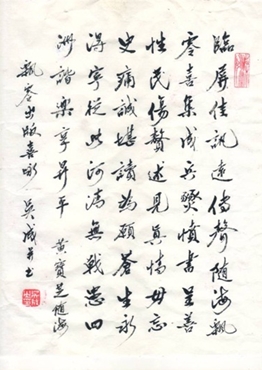 臨屏佳訊遠傳聲隨海飄
零喜集成慎書呈善
性民傷述見真情毋忘
史痛誠堪讀為願蒼生永
得寧從此河清無戰患四
洲諧樂享昇平 黃寶芝隨海
飄零出版喜咏 吳成書